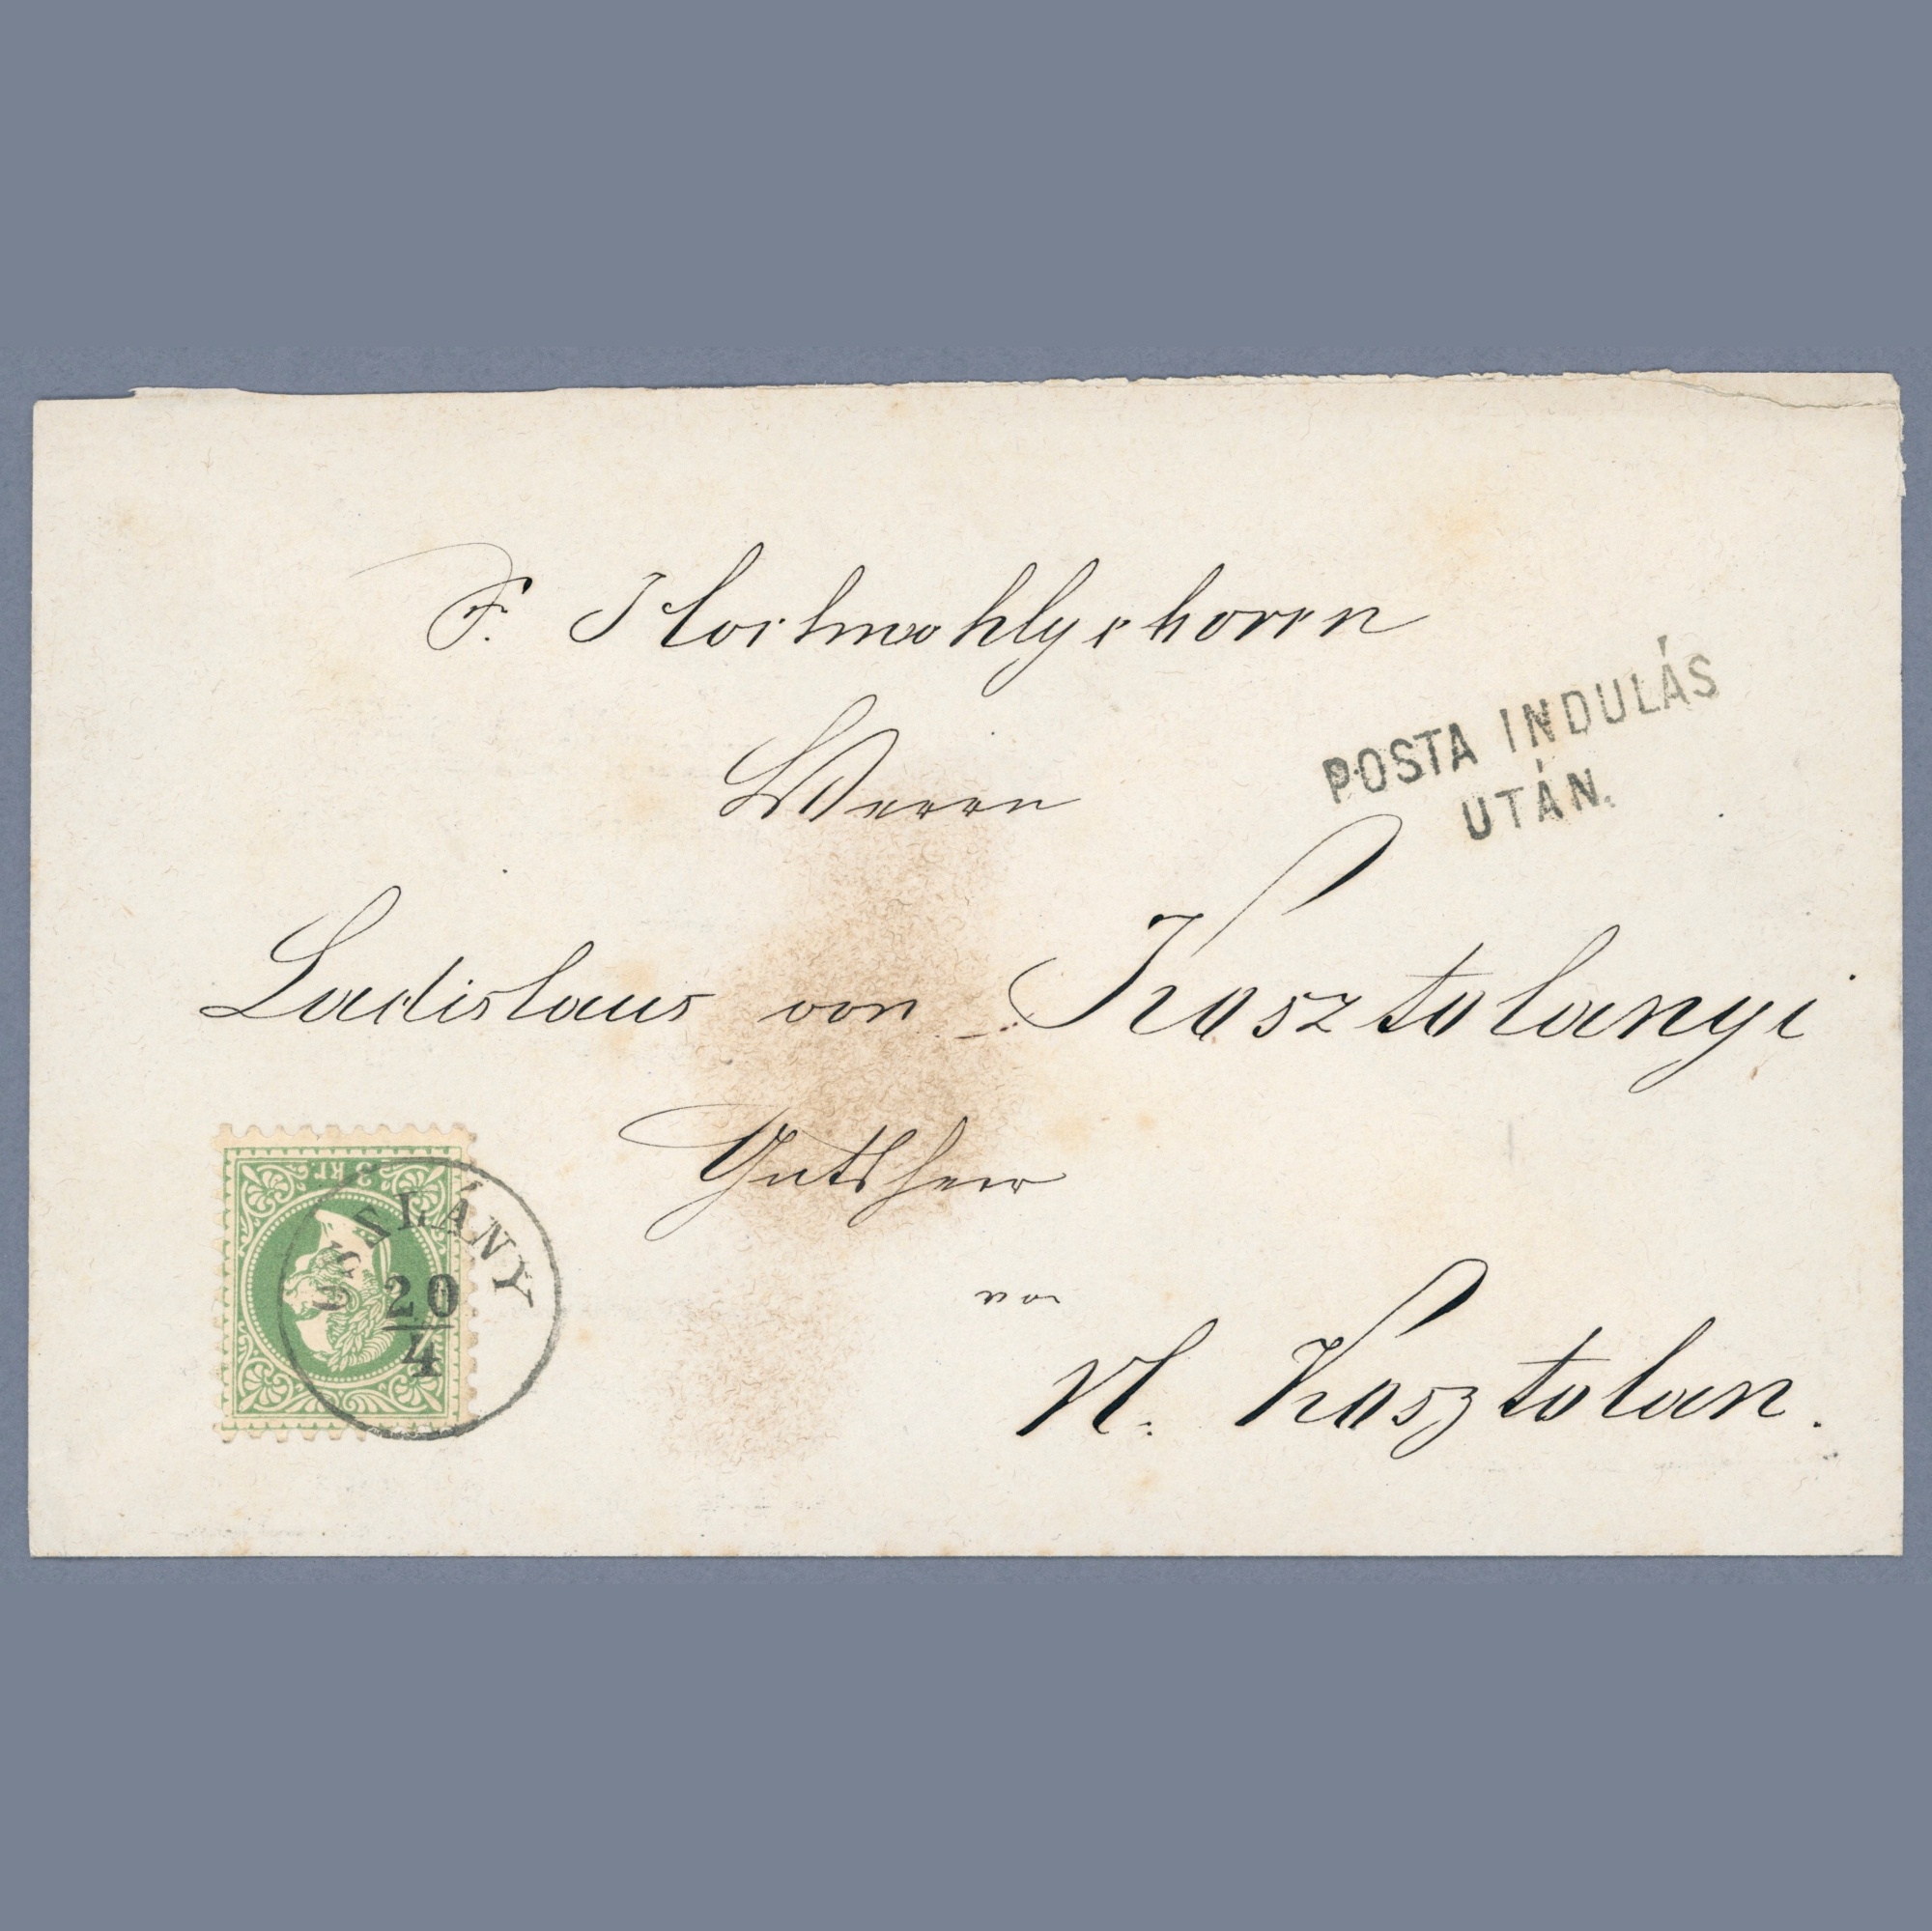 Sr. Hochwohlgeboren
Herrn
POSTA INDULÁS
UTÁN.
Ladislaus von Kosztolanyi
Gutsherr
von
N. Kosztolan.
3 kr.
OSZLÁNY
20
4